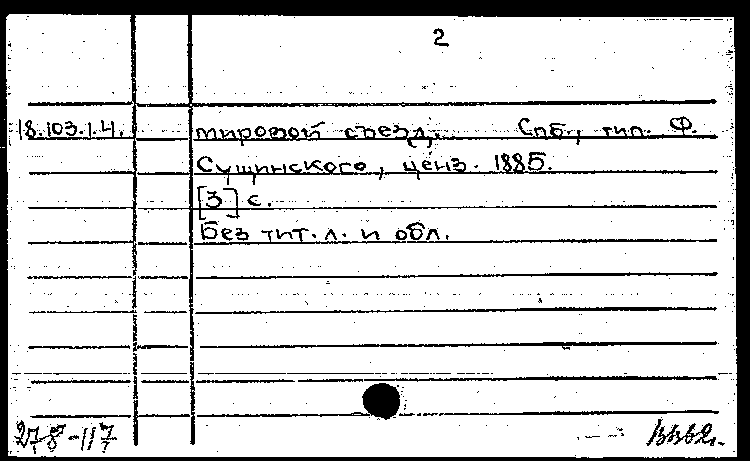 2
18.103.1.4. мировой съезд, ... Спб., тип. Ф.
Сущинского, ценз. 1885.
[3] с.
Без тит. л. и обл.
278-117